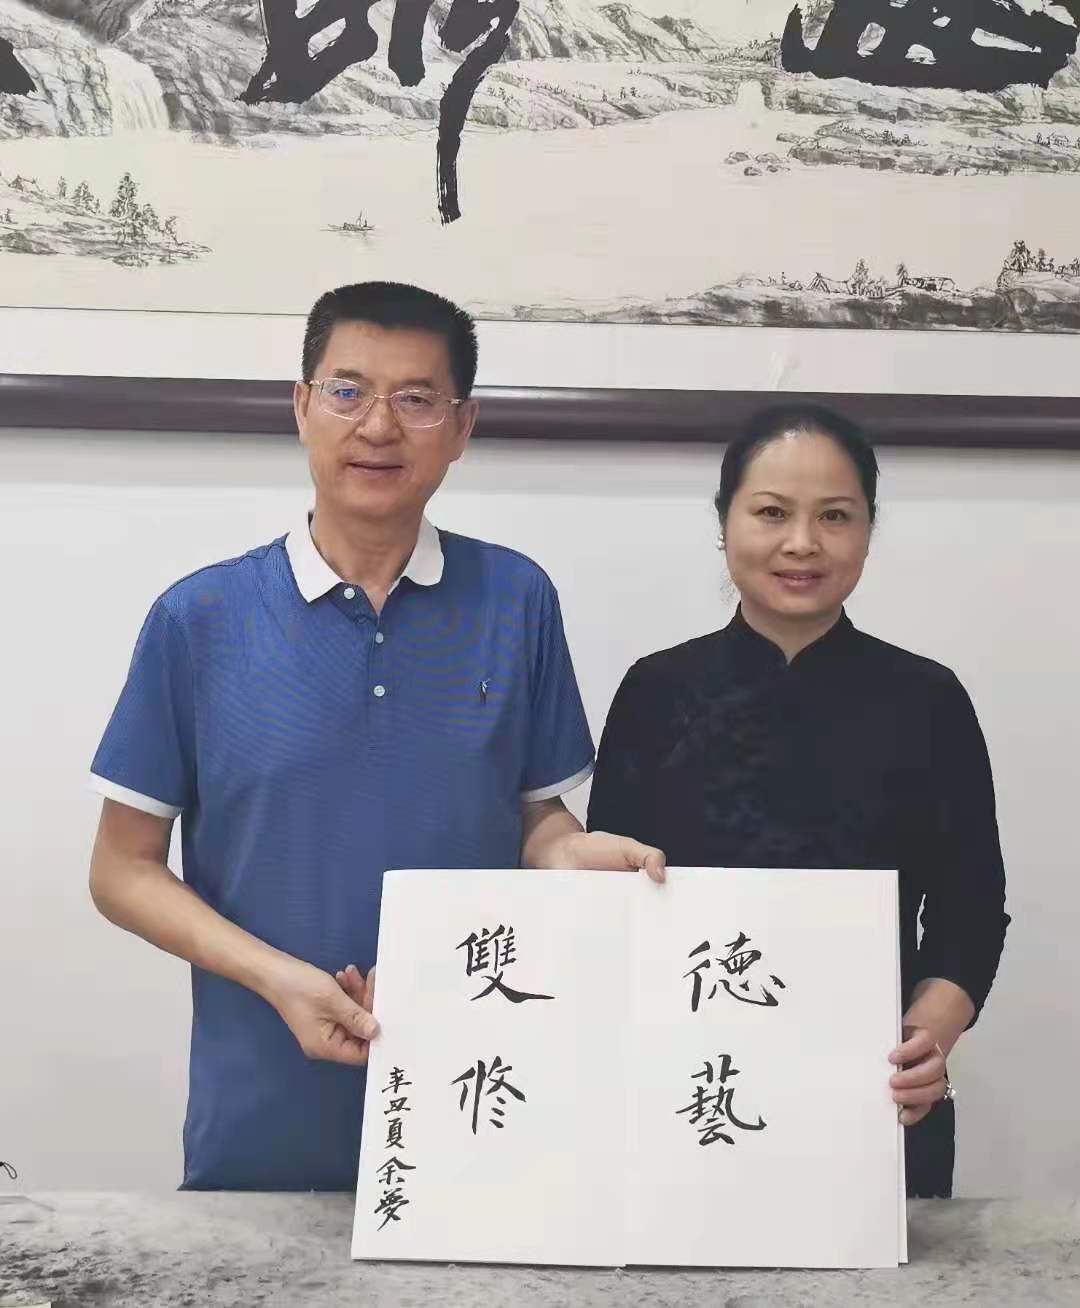 德藝
雙修
辛丑夏余夢